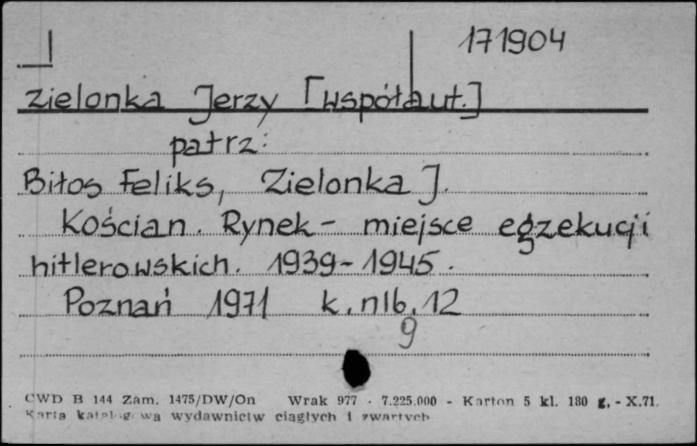 171904
Zielonka Jerzy [współaut.]
patrz:
Biłos Feliks, Zielonka J.
Kościan. Rynek - miejsce egzekucji
hitlerowskich. 1939-1945.
Poznań 1971 k. nlb. 12
9
CWD B 144 Zam. 1475/DW/On Wrak 977 - 7.225.000 - Karton 5 kl. 180 g, - X.71.
Karta katalogowa wydawnictw ciągłych i zwartych